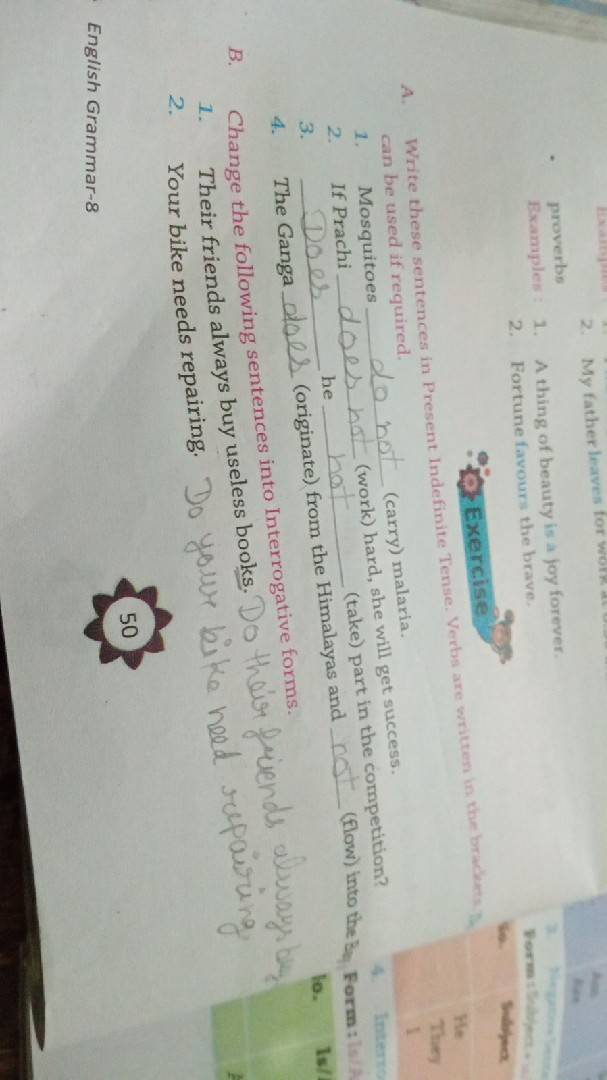 2. My father leaves for work
proverbs
Examples : 1. A thing of beauty is a joy forever.
2. Fortune favours the brave.
Exercise
A. Write these sentences in Present Indefinite Tense. Verbs are written in the brackets.
can be used if required.
1. Mosquitoes do not (carry) malaria.
2. If Prachi does not (work) hard, she will get success.
3. Does he not (take) part in the competition?
4. The Ganga does (originate) from the Himalayas and not (flow) into the
B. Change the following sentences into Interrogative forms.
1. Their friends always buy useless books. Do their friends always buy
2. Your bike needs repairing. Do your bike need repairing
English Grammar-8
50
3. Negative
Form : Subject
Subject
He
They
I
4. Interro
Form : Is/A
Is/